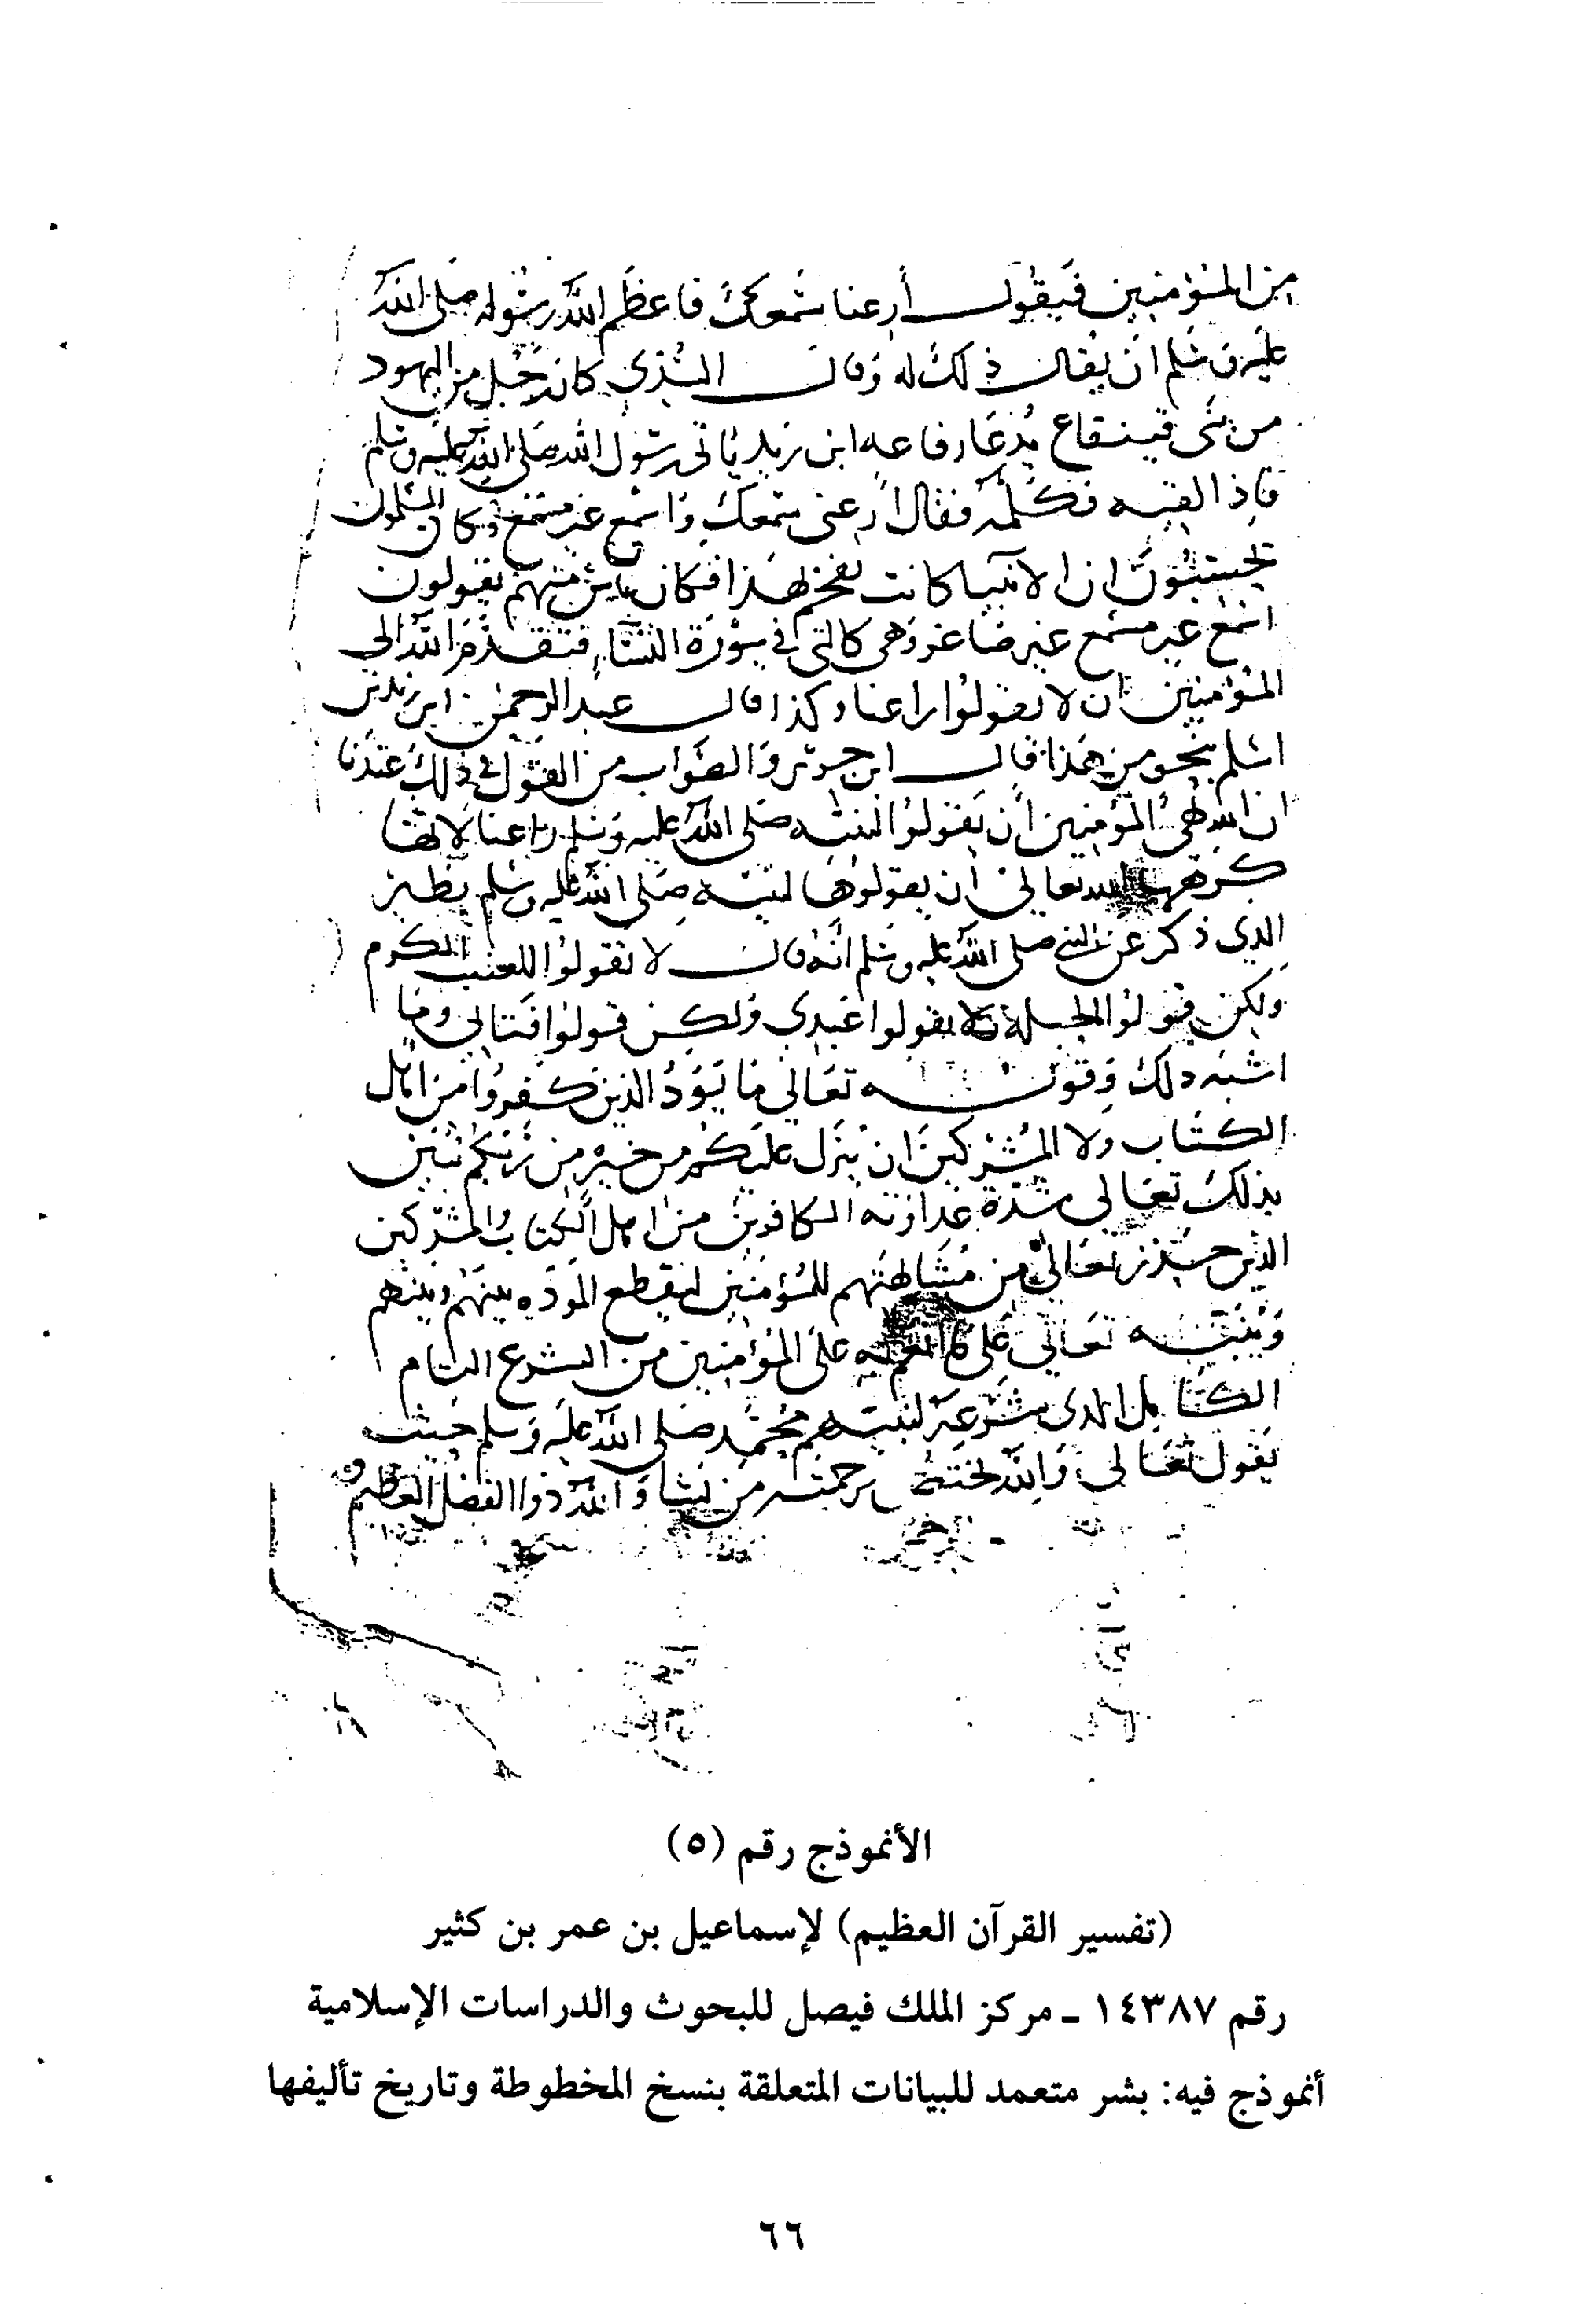 من المؤمنين فيقول أرعنا سمعك فاعظم الله رسوله صلى الله
عليه وسلم ان يقال ذلك له وقال السدي كان رجل من اليهود
من بني قينقاع يدعا رفاعه ابن زيد ياتي رسول الله صلى الله عليه وسلم
فاذا لقيه فكلمه فقال ارعني سمعك واسمع غير مسمع وكان المسلمون
يحسبون ان الانبيا كانت تفخم بهذا فكان ناس منهم يقولون
اسمع غير مسمع غير صاغر وهي كالتي في سورة النساء فتقدم الله الى
المؤمنين ان لا يقولوا راعنا وكذا قال عبد الرحمن ابن زيد بن
اسلم بنحو من هذا قال ابن جرير والصواب من القول في ذلك عندنا
ان الله نهى المؤمنين أن يقولوا لنبيه صلى الله عليه وسلم راعنا لانها
كرهها الله تعالى أن يقولوها لنبيه صلى الله عليه وسلم نظير
الذي ذكر عن النبي صلى الله عليه وسلم أنه قال لا تقولوا للعنب الكرم
ولكن قولوا الحبلة ولا تقولوا عبدي ولكن قولوا فتاي وما
اشبه ذلك وقوله تعالى ما يود الذين كفروا من اهل
الكتاب ولا المشركين ان ينزل عليكم من خير من ربكم يبين
بذلك تعالى شدة عداوته الكافرين من اهل الكتاب والمشركين
الذين حذر تعالى من مشابهتهم للمؤمنين ليقطع المودة بينهم وبينهم
وينبه تعالى على ما أنعم به على المؤمنين من الشرع التام
الكامل الذي شرعه لنبيهم محمد صلى الله عليه وسلم حيث
يقول تعالى والله يختص برحمته من يشا والله ذوا الفضل العظيم
الأنموذج رقم (٥)
(تفسير القرآن العظيم) لإسماعيل بن عمر بن كثير
رقم ١٤٣٨٧ ـ مركز الملك فيصل للبحوث والدراسات الإسلامية
أنموذج فيه: بشر متعمد للبيانات المتعلقة بنسخ المخطوطة وتاريخ تأليفها
٦٦